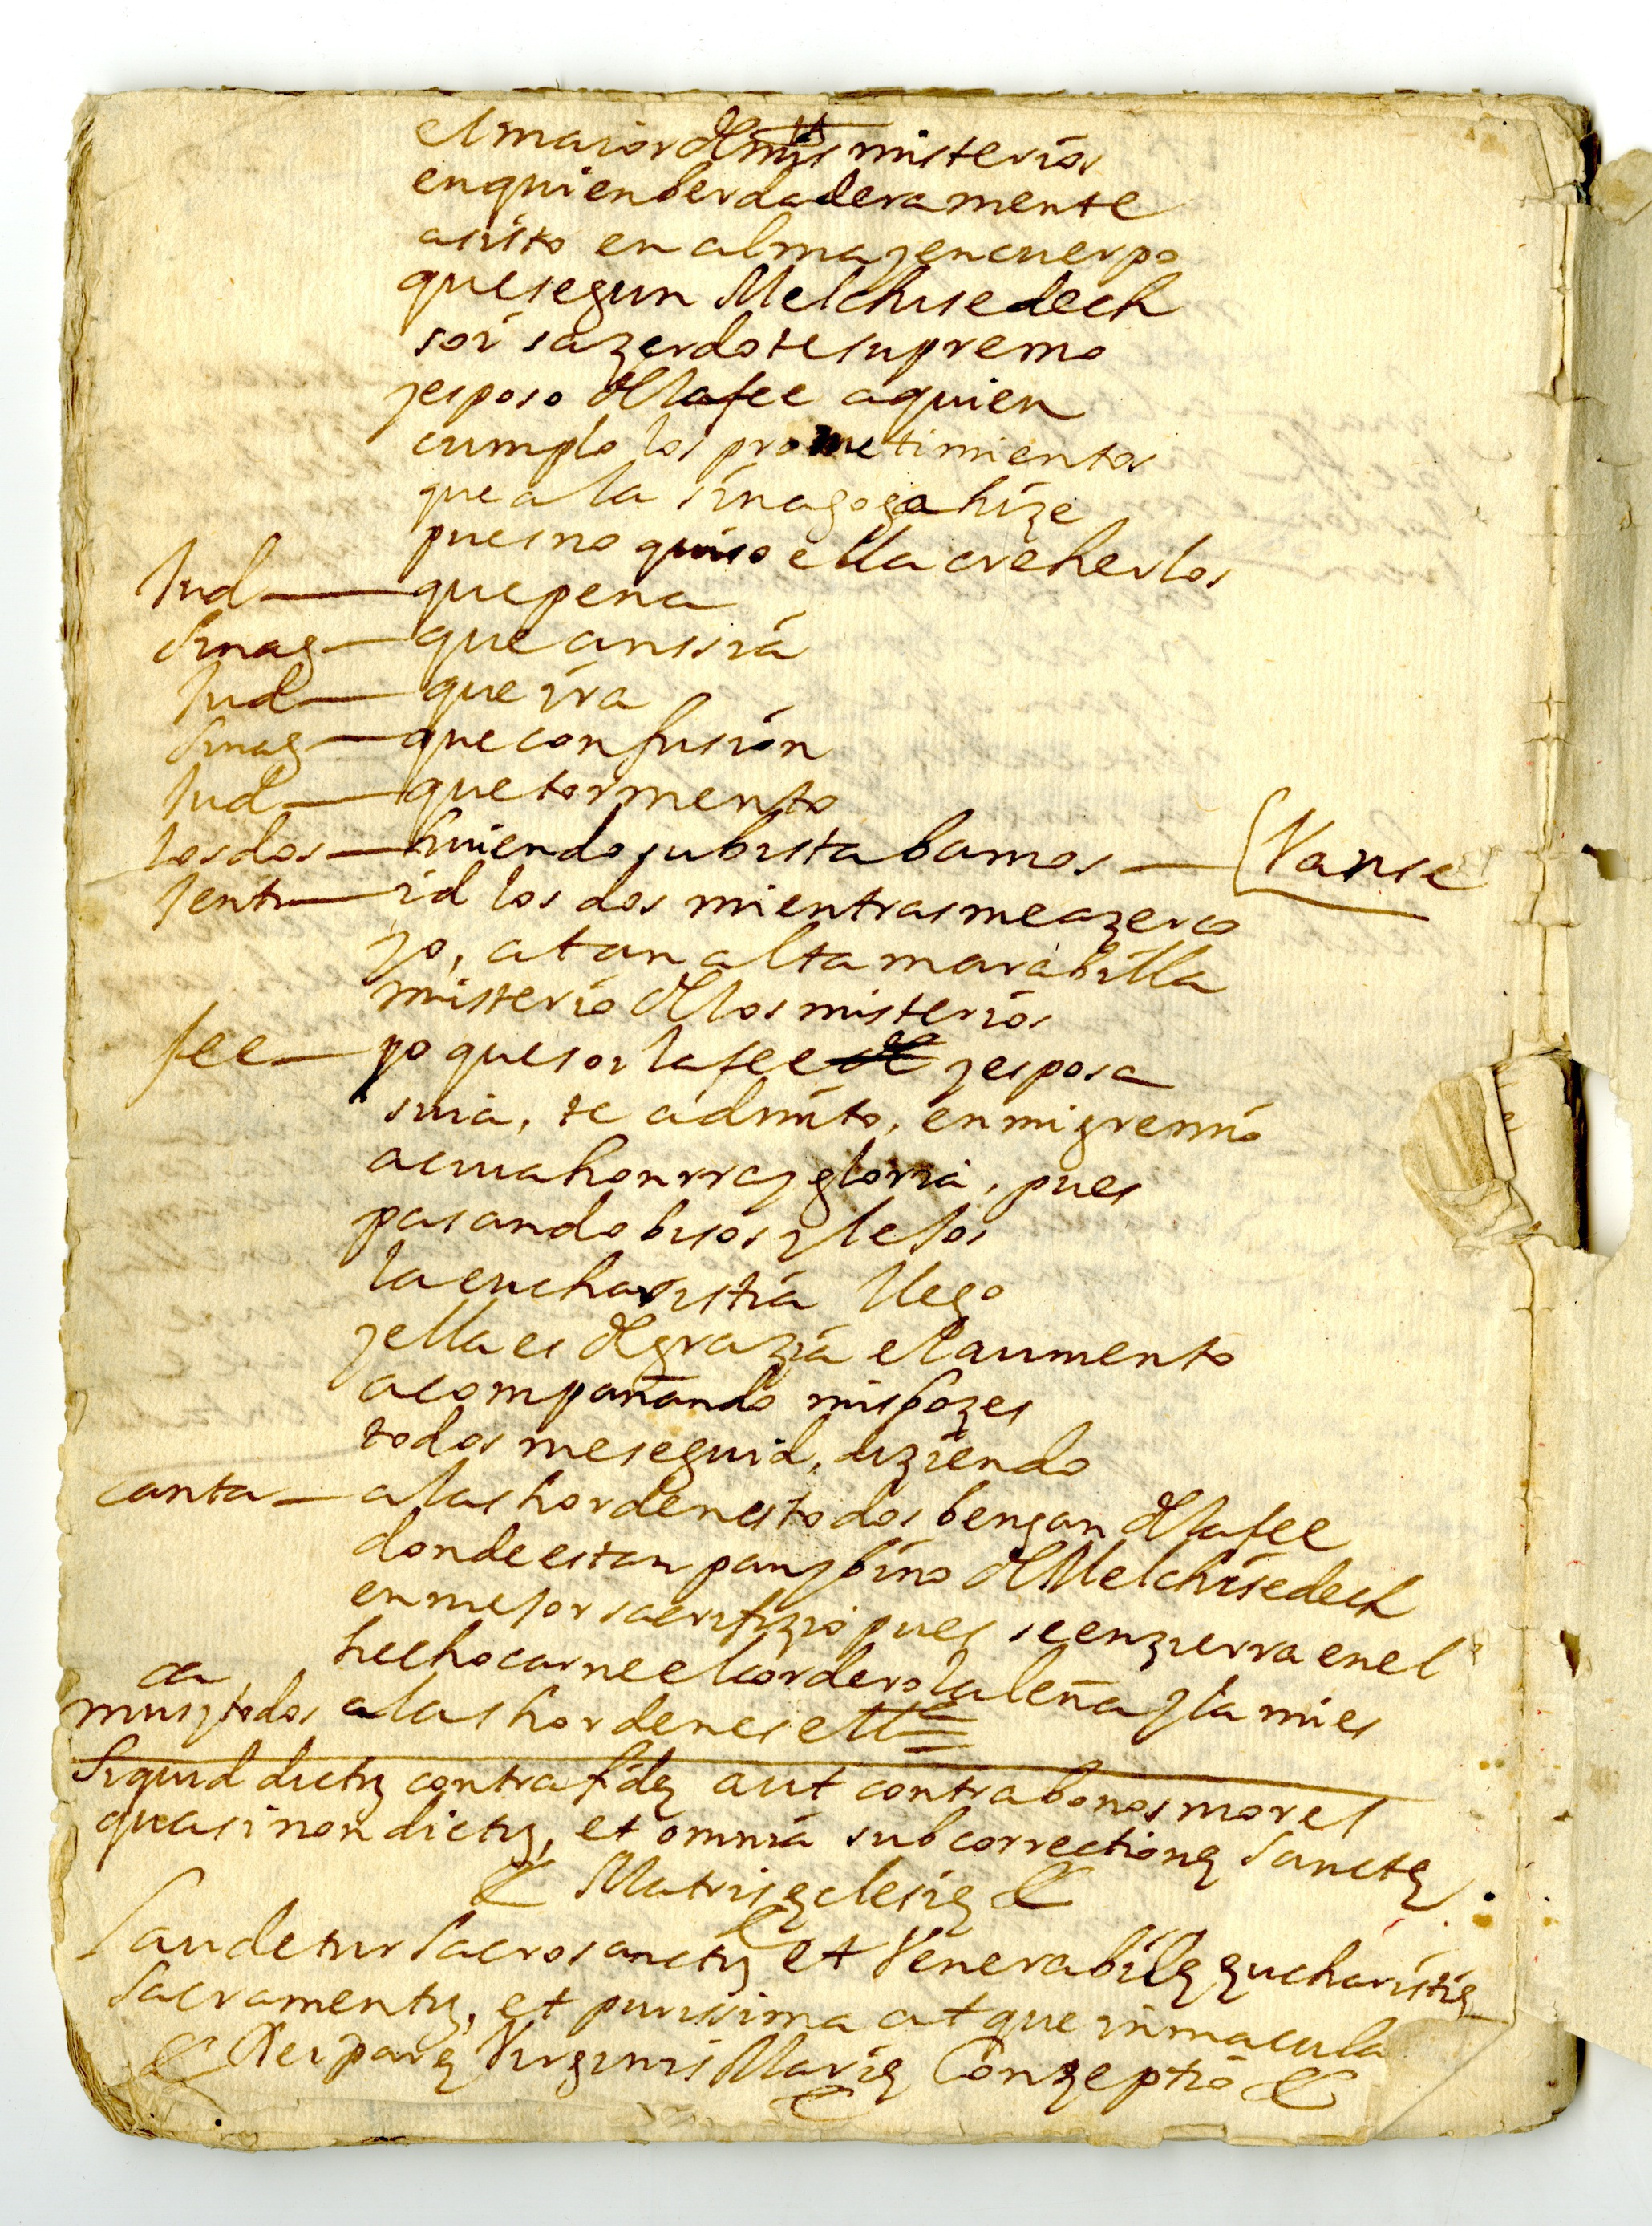 el maior de mis misterios
en quien berdaderamente
asisto en alma y en cuerpo
que segun Melchisedech
soi sazerdote supremo
y esposo de la fee a quien
cumplo los prometimientos
que a la sinagoga hize
pues no quiso ella creherlos
Jud — que pena
Sinag — que anssia
Jud — que ira
Sinag — que confusion
Jud — que tormento
los dos — huiendo su bista bamos — Vanse
Jenti — id los dos mientras me azerco
yo, a tan alta marabilla
misterio de los misterios
fee — yo que soi la fee y esposa
suia, te admito, en mi gremio
a cuia honrra y gloria, pues
pasando bisos y lejos
la eucharistia llego
y ella es de grazia el aumento
acompañando mis bozes
todos me seguid, diziendo
canta — a las hordenes todos bengan de la fee
donde estan pan y bino de Melchisedech
en mejor sacrifizio pues se enzierra en el
hecho carne el cordero la leña y la mies
musᶜᵃ y todos a las hordenes ett
Siquid dictu contra fide aut contra bonos mores
quasi non dictu, et omnia sub correctione Sancte
Matris eclesie
Laudetur Sacrosanctu et Venerabile eucharistie
Sacramentu, et purissima atque inmacula
Deipare Virginis Marie Conzeptio